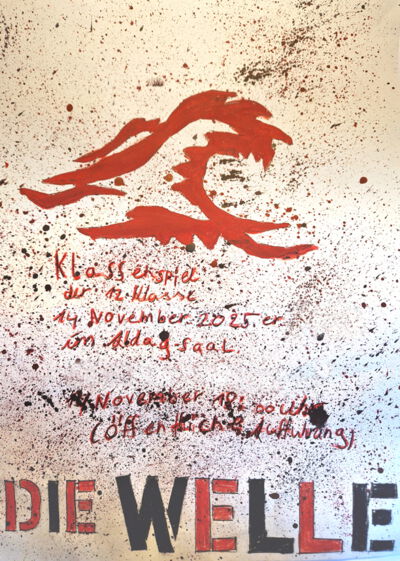 Klassenspiel
der 12. Klasse
14 November 2025 er
im Alltagsaal
November 18:00 Uhr
(öffentliche Aufführung)
DIE WELLE